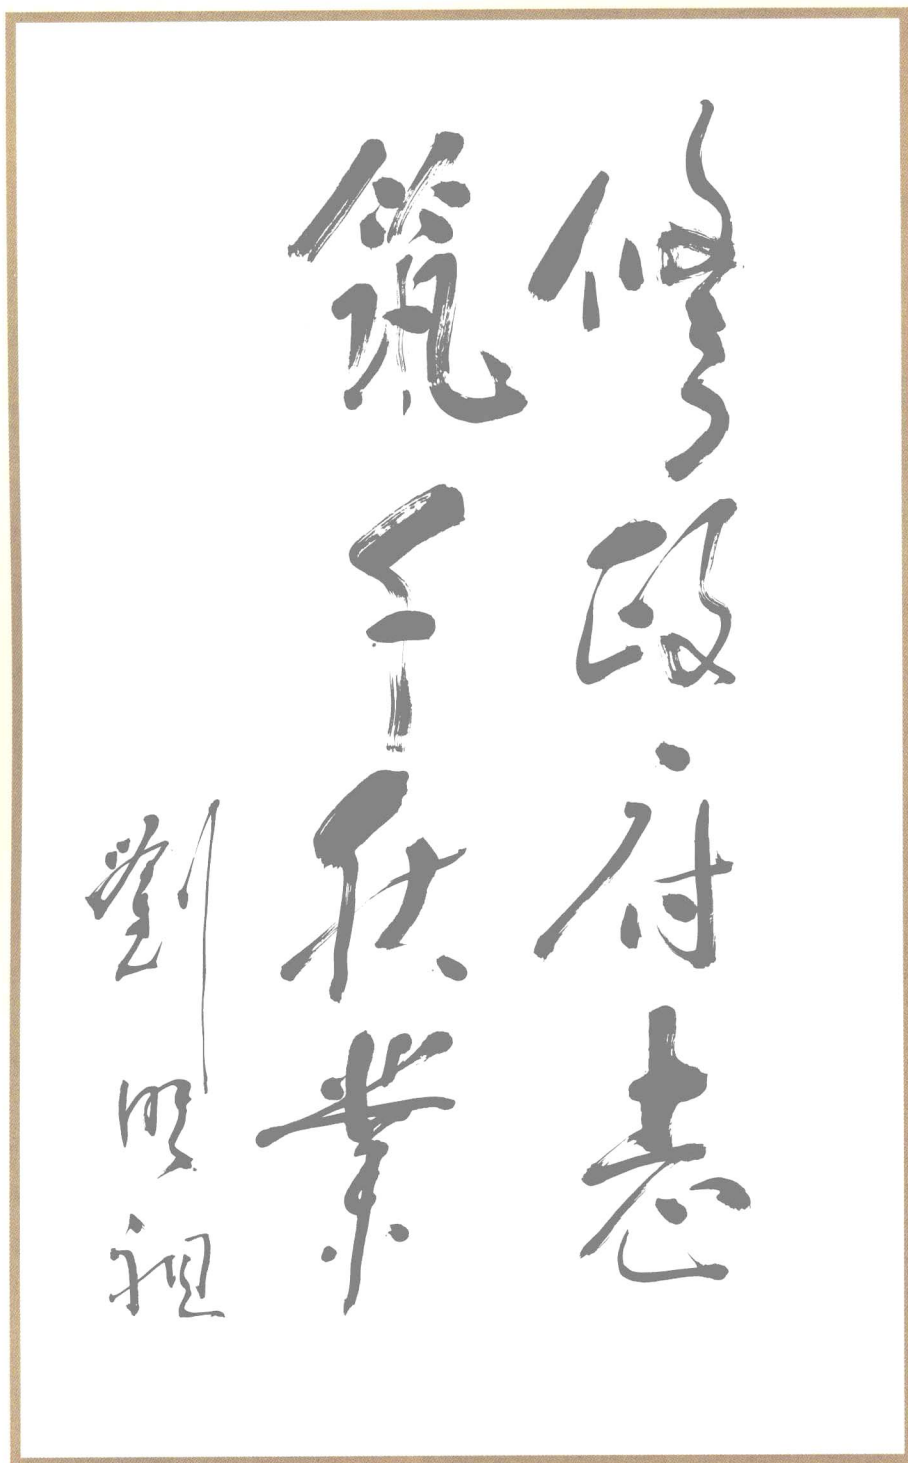 修政府志
筑千秋業
劉明祖